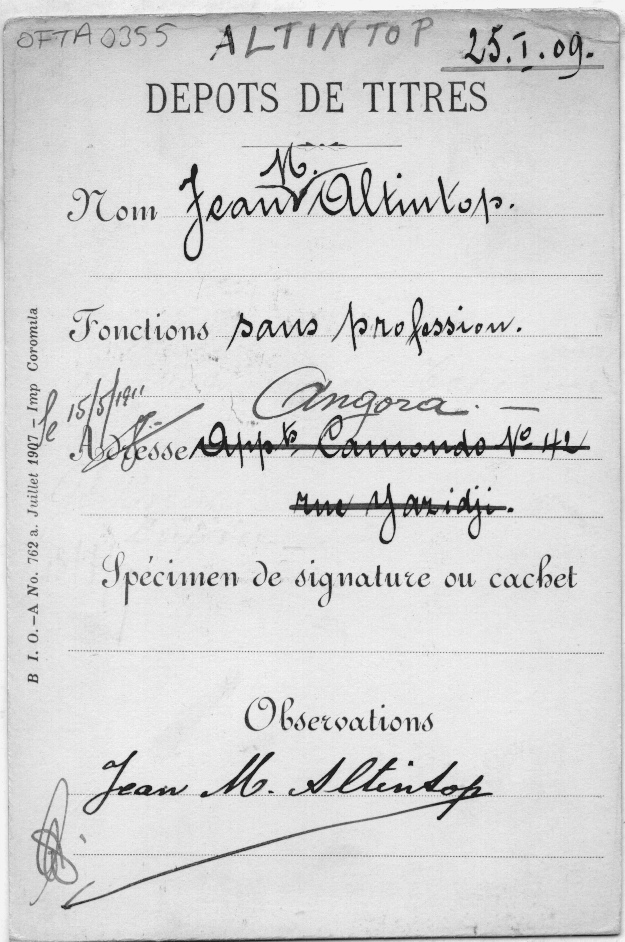 OFTA0355 ALTINTOP 25.I.09.
DEPOTS DE TITRES
M.
Nom Jean Altintop.
Fonctions sans profession.
le 15/5/1911 Angora. —
Adresse Appt Camondo No 42
rue Yazidji.
Spécimen de signature ou cachet
Observations
Jean M. Altintop
B I. O.–A No. 762 a. Juillet 1907 – Imp Coromila